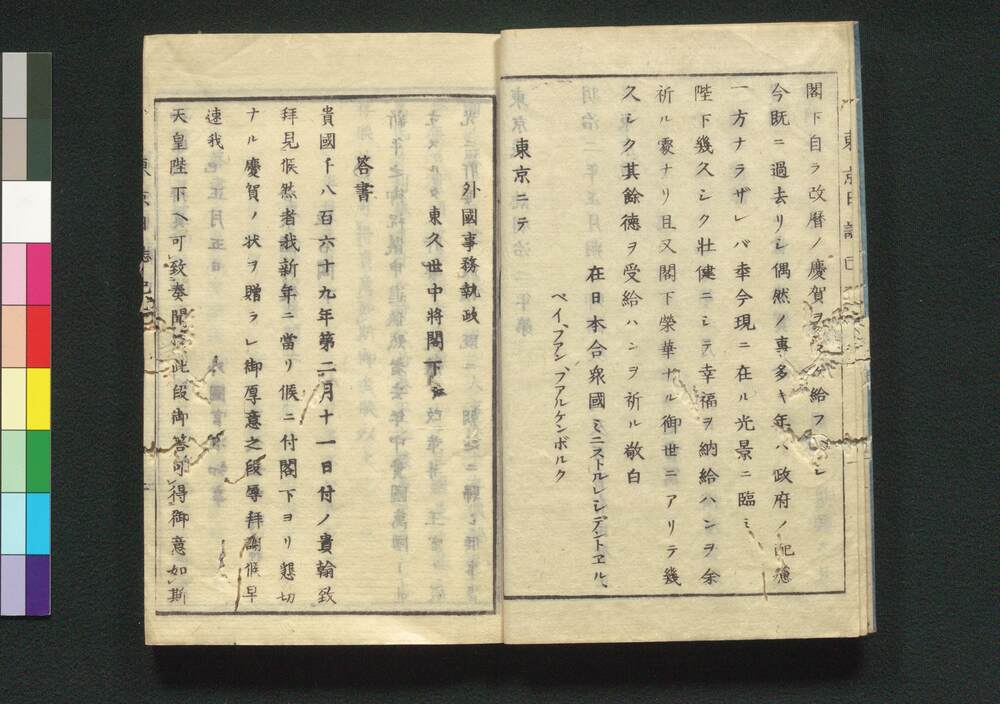 閣下自ラ改曆ノ慶賀ヲ給フ
今既ニ過去リシ偶然ノ事多キ年ハ政府ノ配慮
一方ナラザレバ幸今現ニ在ル光景ニ臨ミ
陛下幾久シク壮健ニシテ幸福ヲ納給ハンヲ余
祈ル處ナリ且又閣下榮華ナル御世ニアリテ幾
久シク其餘德ヲ受給ハンヲ祈ル敬白
東京ニテ
在日本合衆國ミニストルレシデントヱル、
ベイ、ファン、ファルケンボルク
外國事務執政
東久世中將閣下ニ
答書
貴國千八百六十九年第二月十一日付ノ貴翰致
拜見候然者我新年ニ當リ候ニ付閣下ヨリ懇切
ナル慶賀ノ状ヲ贈ラレ御厚意之段辱拜謝候早
速我
天皇陛下ヘ可致奏聞候此段御答可得御意如斯